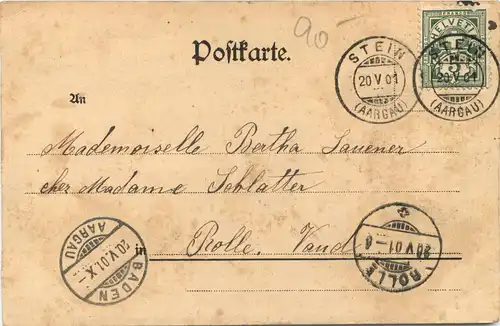 90
HELVETIA
Postkarte.
STEIN
20 V 01
(AARGAU)
STEIN
20 V 01
(AARGAU)
5
An
Mademoiselle Bertha Sauener
chez Madame Schlatter
in Rolle. Vaud
AARGAU
20.V.01.X-
BADEN
20 V 01 - 6
ROLLE